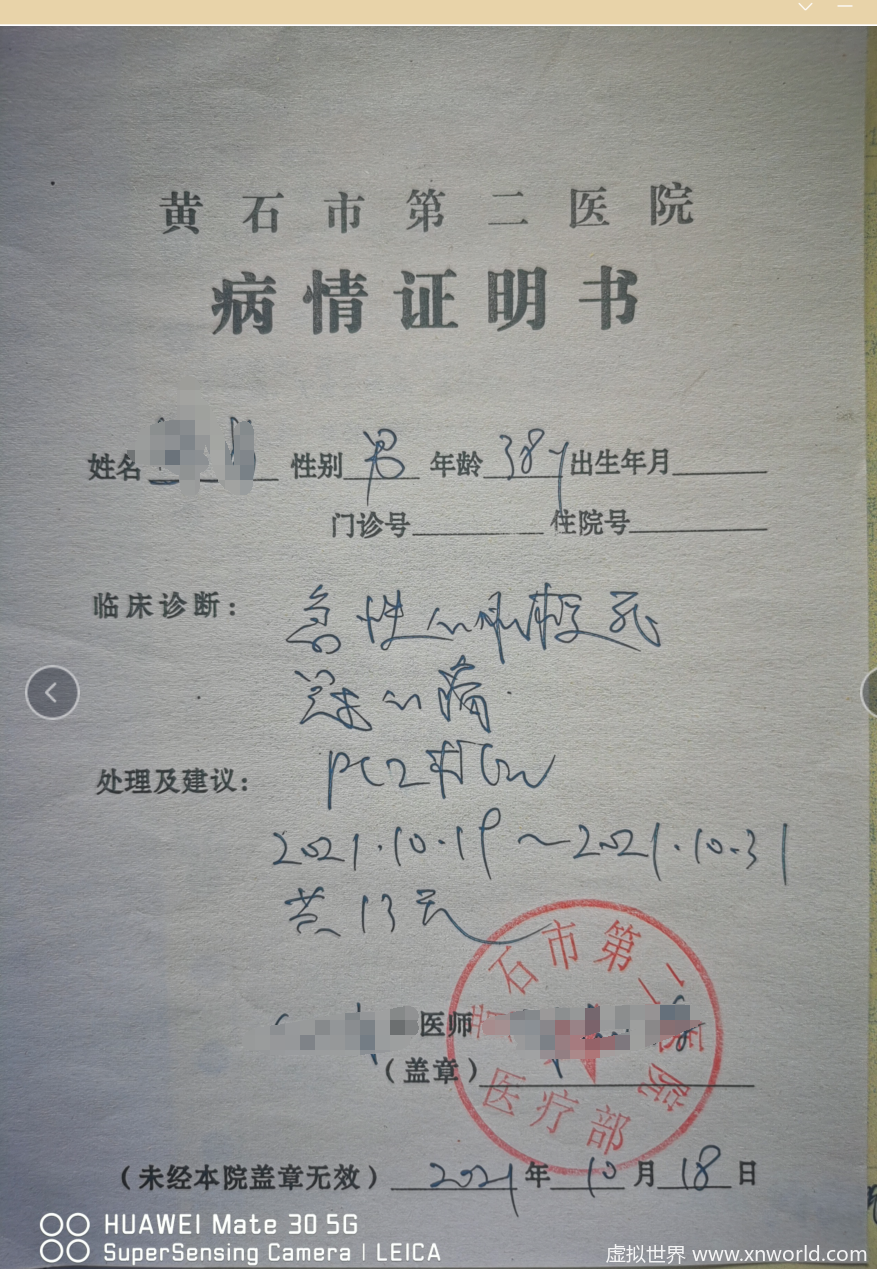 黄石市第二医院
病情证明书
姓名 性别 男 年龄 38y 出生年月
门诊号 住院号
临床诊断: 急性心肌梗死
冠心病
处理及建议:
2021.10.19~2021.10.31
共13天
医师
(盖章)
黄石市第二医院
医疗部
(未经本院盖章无效) 2021年10月18日
HUAWEI Mate 30 5G
SuperSensing Camera | LEICA
虚拟世界 www.xnworld.com